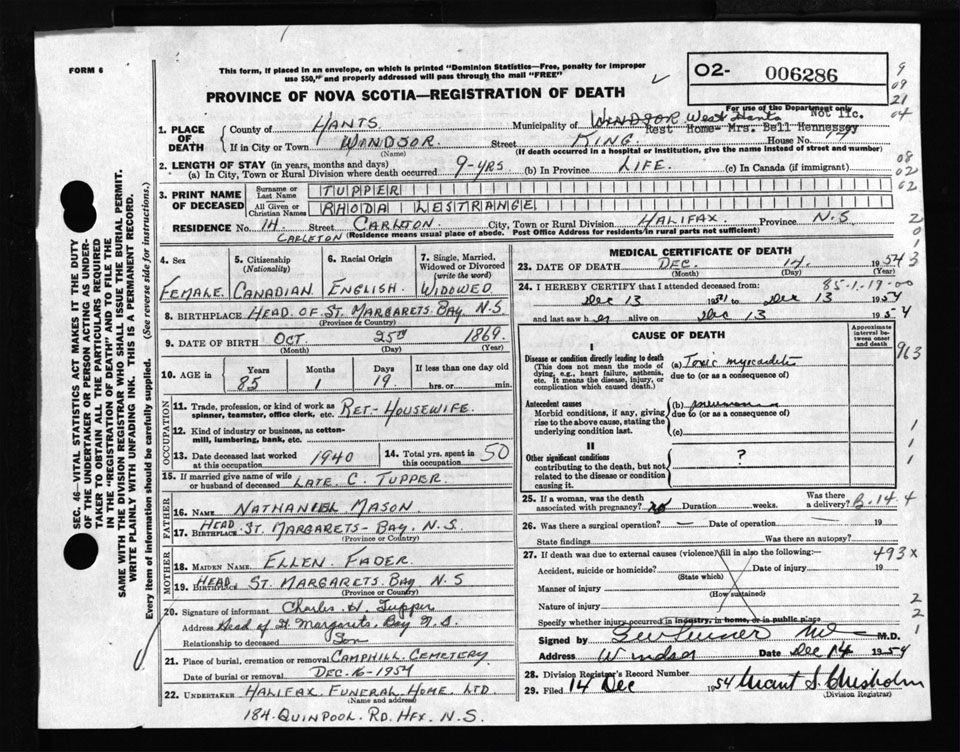 FORM 6
This form, if placed in an envelope, on which is printed "Dominion Statistics—Free, penalty for improper
use $50," and properly addressed will pass through the mail "FREE"
02- 006286
PROVINCE OF NOVA SCOTIA—REGISTRATION OF DEATH
9
09
21
04
For use of the Department only
Not lic.
1. PLACE OF DEATH
County of HANTS Municipality of WINDSOR West Hants
Rest Home- Mrs. Bell Hennessy
If in City or Town WINDSOR. Street KING. House No.
(Name) (If death occurred in a hospital or institution, give the name instead of street and number)
2. LENGTH OF STAY (in years, months and days)
(a) In City, Town or Rural Division where death occurred 9-yrs. (b) In Province LIFE. (c) In Canada (if immigrant)
08
02
02
3. PRINT NAME OF DECEASED
Surname or Last Name TUPPER
All Given or Christian Names RHODA LESTRANGE
RESIDENCE No. 14 Street CARLETON. City, Town or Rural Division HALIFAX. Province N.S
CARLETON (Residence means usual place of abode. Post Office Address for residents in rural parts not sufficient)
2
0
1
3
4. Sex
FEMALE
5. Citizenship
(Nationality)
CANADIAN
6. Racial Origin
ENGLISH.
7. Single, Married,
Widowed or Divorced
(write the word)
WIDOWED
8. BIRTHPLACE HEAD OF ST. MARGARETS BAY. N.S
(Province or Country)
9. DATE OF BIRTH OCT. 25TH 1869.
(Month) (Day) (Year)
10. AGE in
Years Months Days If less than one day old
85 1 19. hrs. or min.
OCCUPATION
11. Trade, profession, or kind of work as
spinner, teamster, office clerk, etc. RET-HOUSEWIFE.
12. Kind of industry or business, as cotton-
mill, lumbering, bank, etc.
13. Date deceased last worked
at this occupation 1940
14. Total yrs. spent in
this occupation 50
15. If married give name of wife
or husband of deceased LATE. C. TUPPER.
FATHER
16. Name NATHANIEL MASON
17. Birthplace HEAD ST. MARGARETS-BAY. N.S.
(Province or Country)
MOTHER
18. Maiden Name ELLEN FADER.
19. Birthplace HEAD ST. MARGARETS. BAY N.S
(Province or Country)
20. Signature of informant Charles H. Tupper
Address Head of St. Margarets. Bay N.S
Relationship to deceased Son
21. Place of burial, cremation or removal CAMPHILL CEMETERY
Date of burial or removal DEC-16-1954
22. UNDERTAKER HALIFAX FUNERAL HOME. LTD
(Name and address)
184. QUINPOOL. RD. HFX. N.S.
MEDICAL CERTIFICATE OF DEATH
23. DATE OF DEATH DEC. 14. 1954
(Month) (Day) (Year)
24. I HEREBY CERTIFY that I attended deceased from: 85-1-19-00
Dec 13 19 to Dec 13 1954
and last saw her alive on Dec 13 1954
CAUSE OF DEATH
Approximate
interval between
onset and death
963
I
Disease or condition directly leading to death
(This does not mean the mode of
dying, e.g., heart failure, asthenia,
etc. It means the disease, injury, or
complication which caused death.)
(a) Toxic myocarditis
due to (or as a consequence of)
Antecedent causes
Morbid conditions, if any, giving
rise to the above cause, stating the
underlying condition last.
(b) pneumonia
due to (or as a consequence of)
(c)
II
Other significant conditions
contributing to the death, but not
related to the disease or condition
causing it.
?
1
1
1
25. If a woman, was the death
associated with pregnancy? no Duration weeks. Was there
a delivery? B.14.4
26. Was there a surgical operation? — Date of operation — 19
State findings Was there an autopsy?
27. If death was due to external causes (violence) fill in also the following: 493X
Accident, suicide or homicide? Date of injury 19
(State which)
Manner of injury
(How sustained)
Nature of injury
Specify whether injury occurred in industry, in home, or in public place
2
2
1
Signed by M.D.
Address Windsor Date Dec 14 1954
28. Division Registrar's Record Number
29. Filed 14 Dec 1954 Grant S. Chisholm
(Division Registrar)
SEC. 46—VITAL STATISTICS ACT MAKES IT THE DUTY
OF THE UNDERTAKER OR PERSON ACTING AS UNDER-
TAKER TO OBTAIN ALL THE PARTICULARS REQUIRED
IN THE "REGISTRATION OF DEATH" AND TO FILE THE
SAME WITH THE DIVISION REGISTRAR WHO SHALL ISSUE THE BURIAL PERMIT.
WRITE PLAINLY WITH UNFADING INK. THIS IS A PERMANENT RECORD.
Every item of information should be carefully supplied. (See reverse side for instructions.)